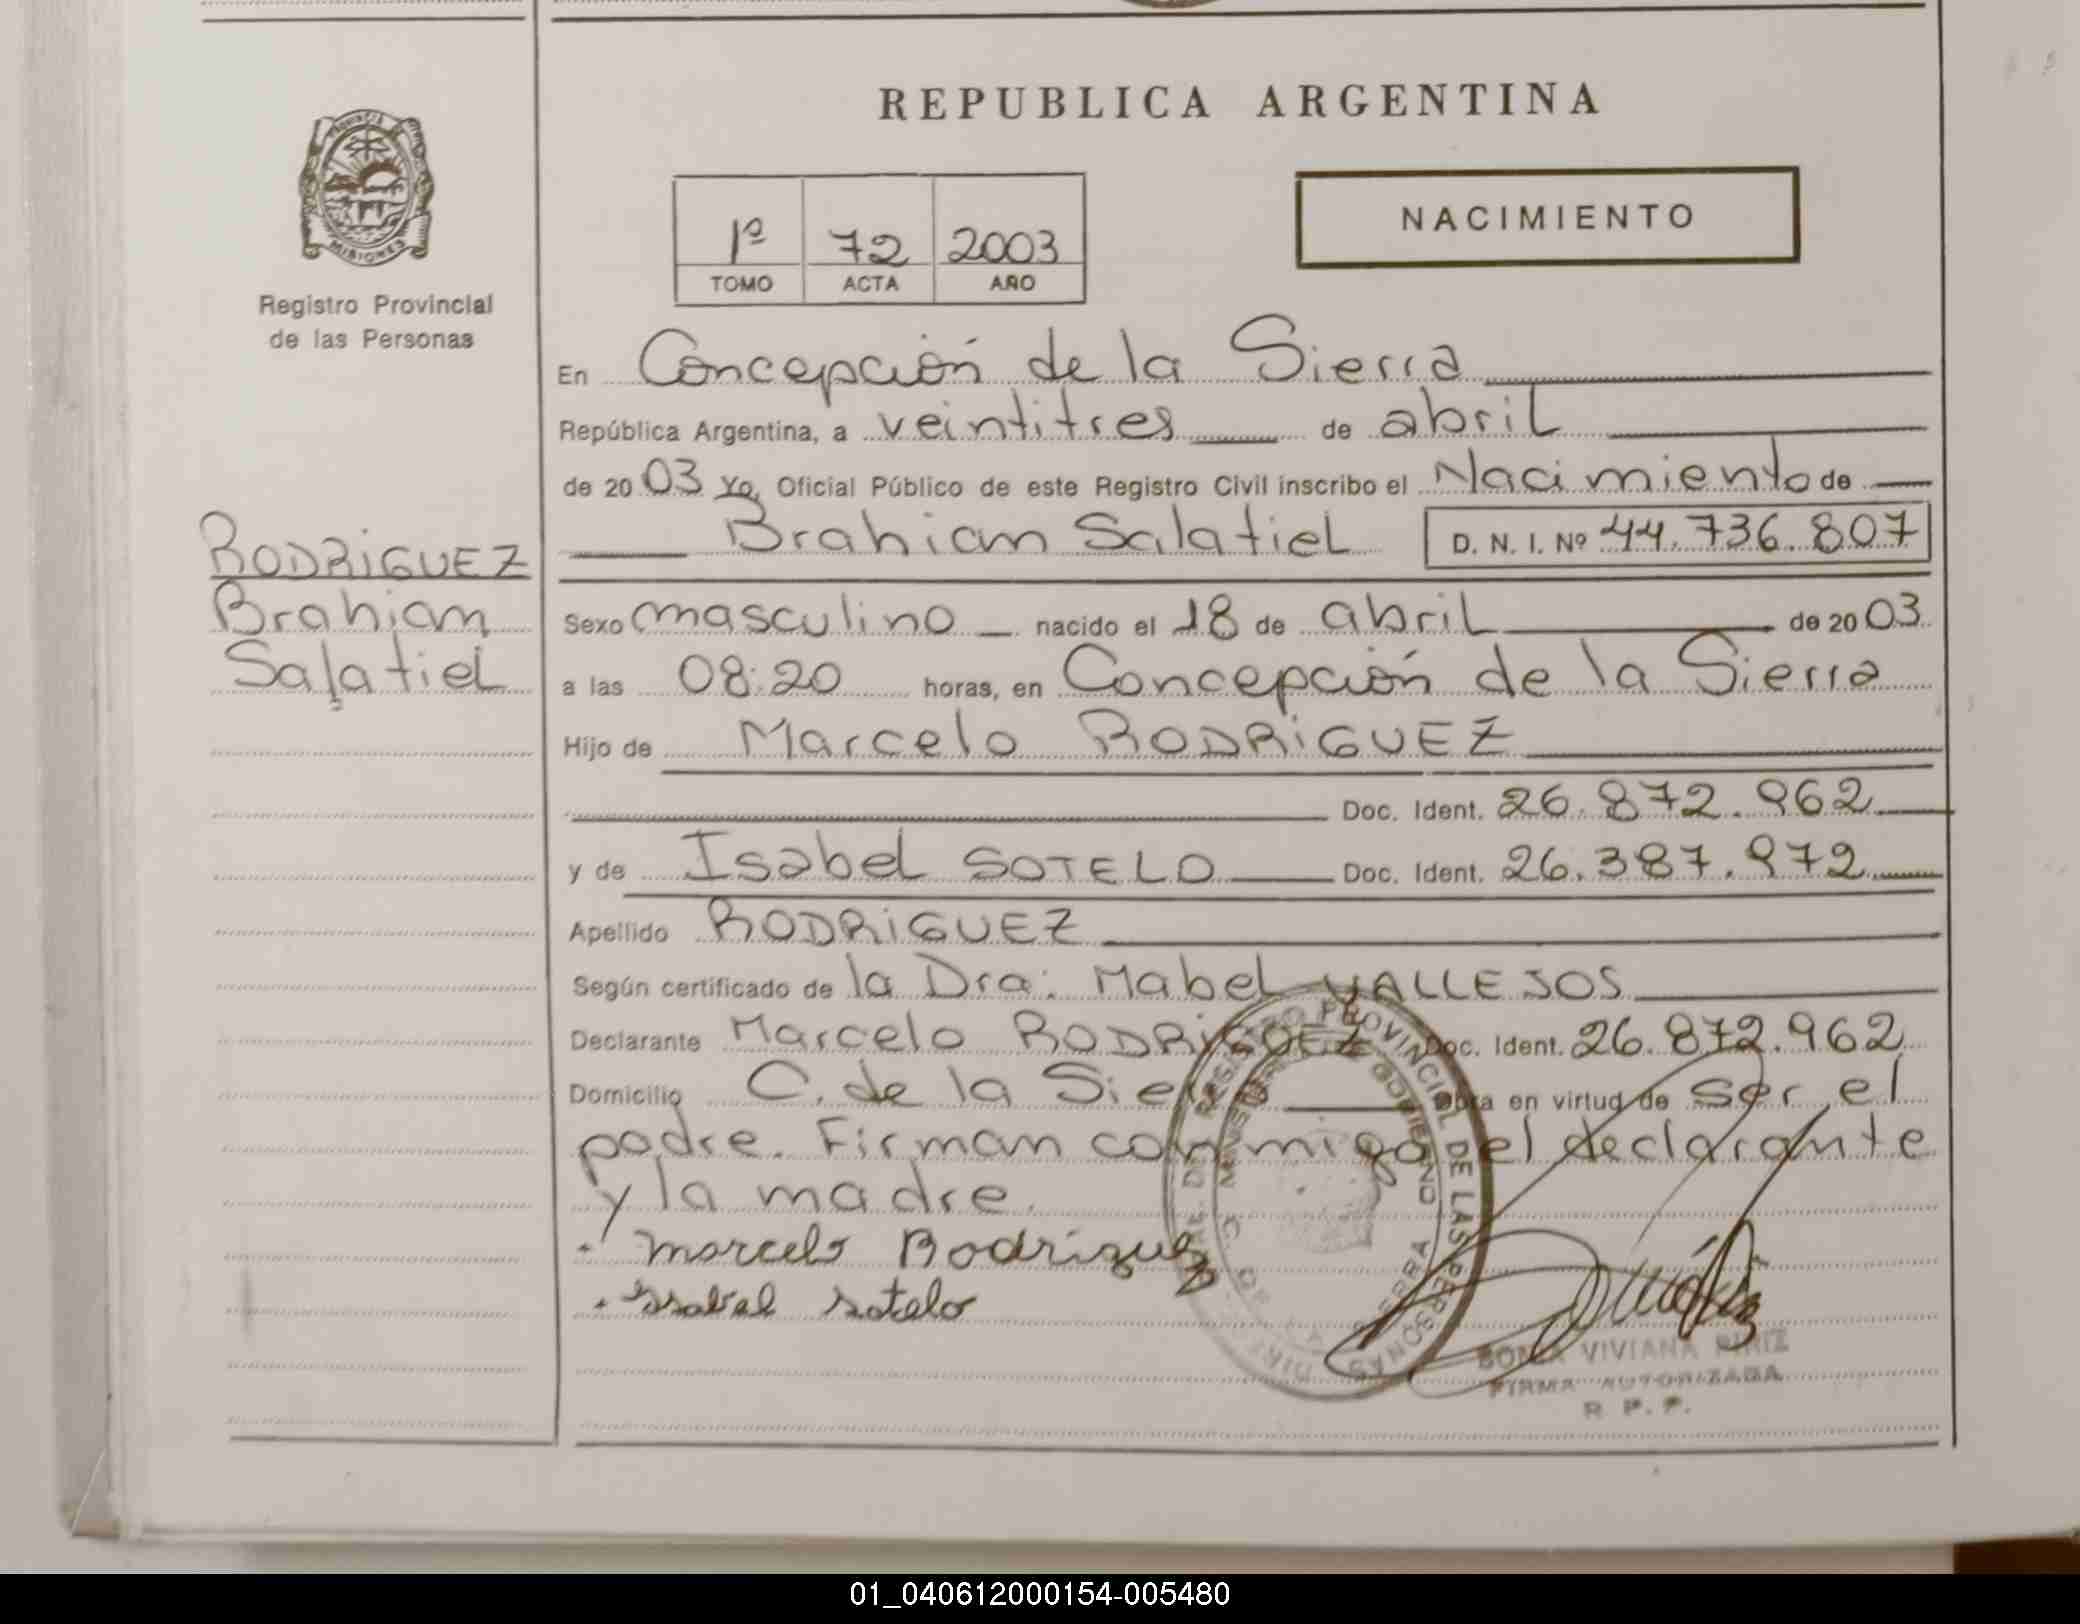 REPUBLICA ARGENTINA
PROVINCIA
MISIONES
Registro Provincial
de las Personas
NACIMIENTO
1º 72 2003
TOMO ACTA AÑO
En Concepción de la Sierra
República Argentina, a veintitres de abril
de 20 03 Yo, Oficial Público de este Registro Civil inscribo el Nacimiento de
Brahian Salatiel D. N. I. Nº 44.736.807
RODRIGUEZ
Brahian
Salatiel
Sexo masculino nacido el 18 de abril de 20 03
a las 08:20 horas, en Concepción de la Sierra
Hijo de Marcelo RODRIGUEZ
Doc. Ident. 26.872.962
y de Isabel SOTELO Doc. Ident. 26.387.972
Apellido RODRIGUEZ
Según certificado de la Dra: Mabel VALLEJOS
Declarante Marcelo RODRIGUEZ Doc. Ident. 26.872.962
Domicilio C. de la Sierra Obra en virtud de ser el
padre. Firman conmigo el declarante
y la madre.
Marcelo Rodriguez
Isabel Sotelo
REGISTRO PROVINCIAL DE LAS PERSONAS
GOBIERNO
SONIA VIVIANA PIRIZ
FIRMA AUTORIZADA
R. P. P.
01_040612000154-005480